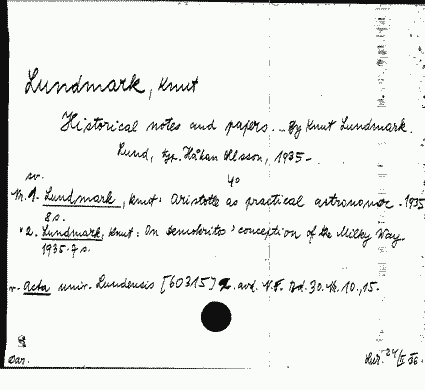 Lundmark, Knut
Historical notes and papers. - By Knut Lundmark.
Lund, typ. Håkan Ohlsson, 1935-
sv. 4o
Nr. 1. Lundmark, Knut: Aristotle as practical astronomer. 1935
8 s.
" 2. Lundmark, Knut: On Demokritos' conception of the Milky Way.
1935. 7 s.
Acta univ. Lundensis [60315] 2. avd. N.F. Bd. 30. Nr. 10., 15.
Dar.
24/II 36.